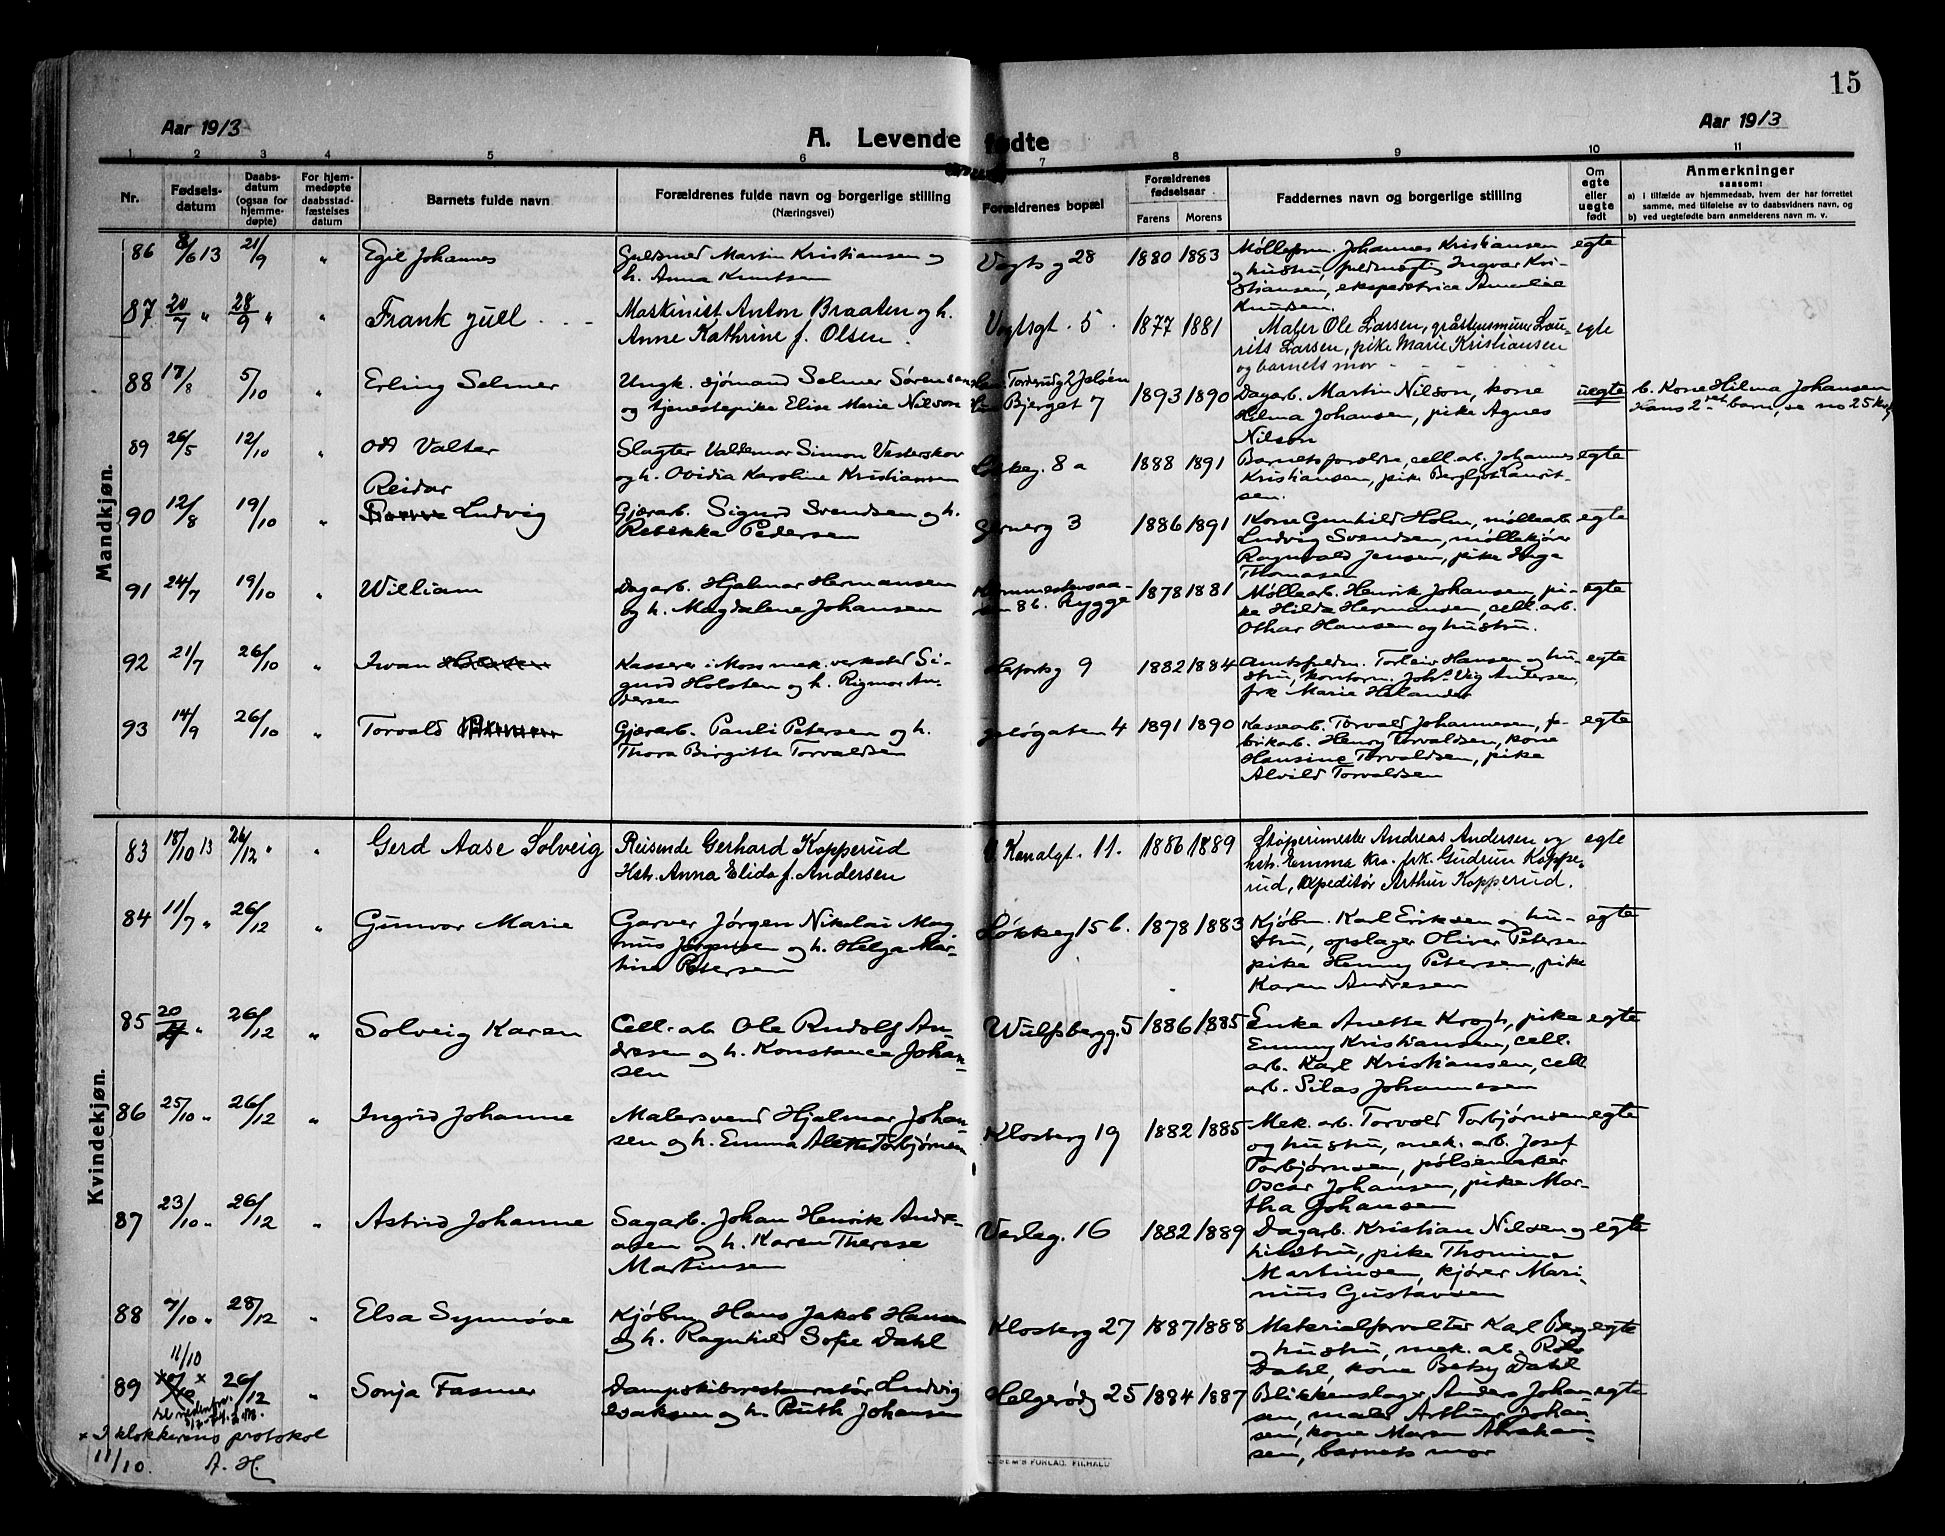 15
Aar 1913
A. Levende fødte
Aar 1913
1 2 3 4 5 6 7 8 9 10 11
Nr.
Fødsels-
datum
Daabs-
datum
(ogsaa for
hjemme-
døpte)
For hjem-
medøpte
daabsstad-
fæstelses
datum
Barnets fulde navn
Forældrenes fulde navn og borgerlige stilling
(Næringsvei)
Forældrenes bopæl
Forældrenes
fødselsaar
Farens Morens
Faddernes navn og borgerlige stilling
Om
egte
eller
uegte
født
Anmerkninger
saasom:
a) i tilfælde av hjemmedaab, hvem der har forrettet
samme, med tilføielse av to daabsvidners navn, og
b) ved uegtefødte barn anmelderens navn m. v.
Mandkjøn.
86 8/6 13 21/9 " Egil Johannes
Guldsmed Martin Kristiansen og
h. Anna Knutsen
Vogtsg 28 1880 1883
Mølleform. Johannes Kristiansen
og hustru, fuldmægtig Ingvar Kri-
stiansen, ekspeditrice Amalie
Knudsen.
egte
87 20/7 " 28/9 " " Frank Juel
Maskinist Anton Braaten og h.
Anne Kathrine f. Olsen.
Vogtsgt. 5. 1877 1881
Maler Ole Larsen, gråstensmurer Lau-
rits Larsen, pike Marie Kristiansen
og barnets mor
egte
88 17/8 5/10 " Erling Selmer
Ungk. sjømand Selmer Sørensen
og tjenestepike Elise Marie Nilson
Torderudg 2 Jeløen
Bjerget 7
1893 1890
Dagarb. Martin Nilson, kone
Hilma Johansen, pike Agnes
Nilson
uegte
b. Kone Hilma Johansen
Hans 2det barn, se no 25
89 26/5 12/10 " Odd Valter
Slagter Valdemar Simon Vesterskov
og h. Ovidia Karoline Kristiansen
Løkkeg. 8 a 1888 1891
Barnets forældre, cell. arb. Johannes
Kristiansen, pike Bergljot Laurit-
sen.
egte
90 12/8 19/10 " Reidar
Ludvig
Gjærarb. Sigurd Svendsen og h.
Rebekka Pedersen
Gernerg 3 1886 1891
Kone Gunhild Holm, møllearb.
Ludvig Svendsen, møllekjører
Ragnvald Jensen, pike Inga
Thomasen
egte
91 24/7 19/10 " William
Dagarb. Hjalmar Hermansen
og h. Magdalene Johansen
8 b. Rygge
1878 1881
Møllearb. Henrik Johansen, pi-
ke Hilda Hermansen, cell. arb.
Othar Hansen og hustru.
egte
92 21/7 26/10 " Iwan
Kasserer i Moss mek. verksted Si-
gurd Holsten og h. Rigmor An-
dersen
Herfordsg 9 1882 1884
Amtsfuldm. Torleiv Hansen og hu-
stru, kontorm. Johs. Vig Andersen,
frk Marie Helander
egte
93 14/9 26/10 " Torvald
Gjærarb. Pauli Petersen og h.
Thora Birgitte Torvaldsen
Jeløgaten 4 1891 1890
Kassearb. Torvald Johannesen, fa-
brikarb. Henry Torvaldsen, kone
Hansine Torvaldsen, pike
Alvild Torvaldsen
egte
Kvindekjøn.
83 18/10 13 26/12 " " Gerd Aase Solveig
Reisende Gerhard Kopperud
Hstr. Anna Elida f. Andersen
Ø. Kanalgt. 11. 1886 1889
Støperimester Andreas Andersen og
hstr. Emma Kra. frk. Gudrun Koppe-
rud, expeditør Arthur Kopperud.
egte
84 11/7 " 26/12 " Gunvor Marie
Garver Jørgen Nikolai Mag-
nus Jørgensen og h. Helga Mar-
tine Petersen
Løkkeg 15 b. 1878 1883
Kjøbm. Karl Eriksen og hu-
stru, opslager Oliver Petersen
pike Henny Petersen, pike
Karen Andresen
egte
85 20/ " 26/12 " Solveig Karen
Cell. arb. Ole Rudolf An-
dresen og h. Konstance Johan-
sen
Wulfsbergg. 5 1886 1885
Enke Anette Krogh, pike
Emmy Kristiansen, cell.
arb. Karl Kristiansen, cell
arb. Silas Johannesen
egte
86 25/10 " 26/12 " Ingrid Johanne
Malersvend Hjalmar Johan-
sen og h. Emma Alette Torbjørnsen
Klosterg 19 1882 1885
Mek. arb. Torvald Torbjørnsen
og hustru, mek. arb. Josef
Torbjørnsen, pølsemaker
Oscar Johansen, pike Mar-
tha Johansen
egte
87 23/10 " 26/12 " Astrid Johanne
Sagarb. Johan Henrik Andre-
asen og h. Karen Therese
Martinsen
Varleg. 16 1882 1889
Dagarb. Kristian Nilsen og
hustru, pike Thomine
Martinsen, kjører Mari-
nius Gustavsen
egte
88 7/10 " 28/12 " Elsa Synnøve
Kjøbm. Hans Jakob Hansen
og h. Ragnhild Sofie Dahl
Klosterg 27 1887 1888
Materialforvalter Karl Berg
og hustru, mek. arb. Rolv
Dahl, kone Betsy Dahl
egte
89 11/10 × 26/12 " Sonja Fasmer
Dampskibsrestauratør Ludvig
Isaksen og h. Ruth Johansen
Helgerødg 25 1884 1887
Blikkenslager Anders Johan-
sen, maler Arthur Johan-
sen, kone Maren Abraham-
sen, barnets mor
egte
× I klokkerens protokol
11/10. A. H.
SEM'S FORLAG. F.HALD